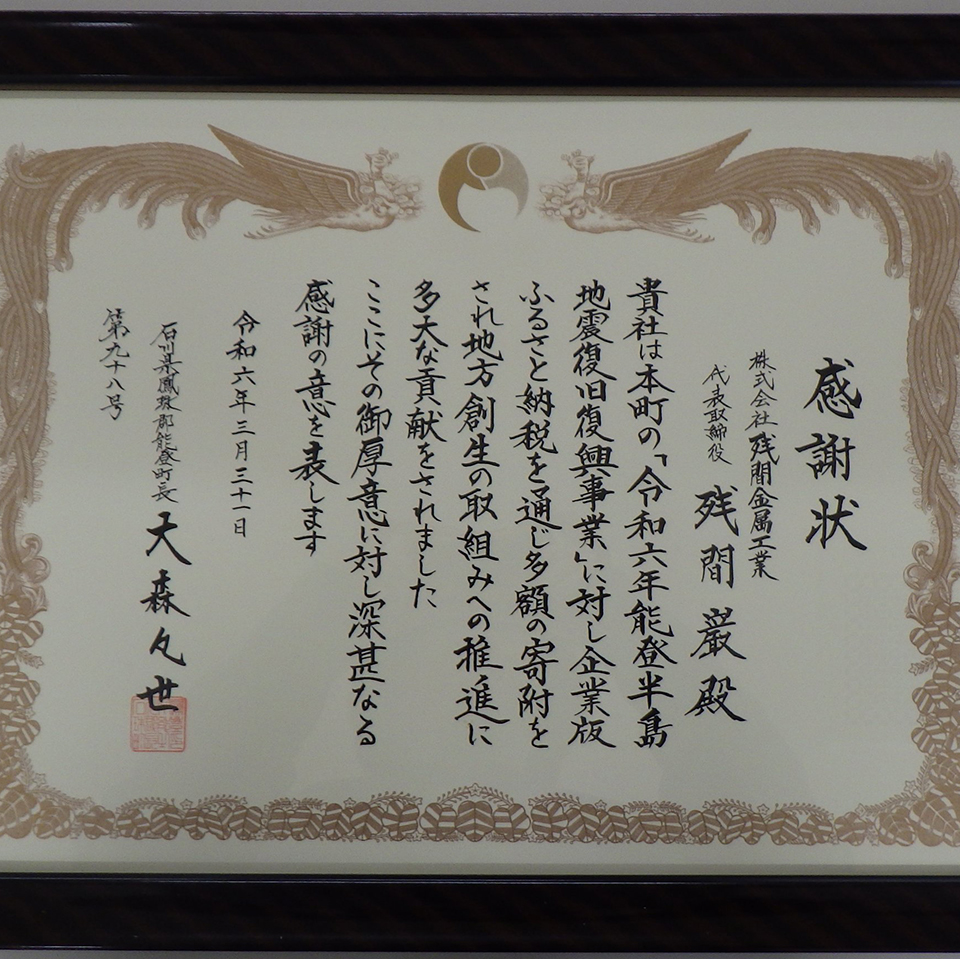 感謝状
株式会社 残間金属工業
代表取締役 残間巌殿
貴社は本町の「令和六年能登半島
地震復旧復興事業」に対し企業版
ふるさと納税を通じ多額の寄附を
され地方創生の取組みへの推進に
多大な貢献をされました
ここにその御厚意に対し深甚なる
感謝の意を表します
令和六年三月三十一日
石川県鳳珠郡能登町長 大森凡世
第九十八号